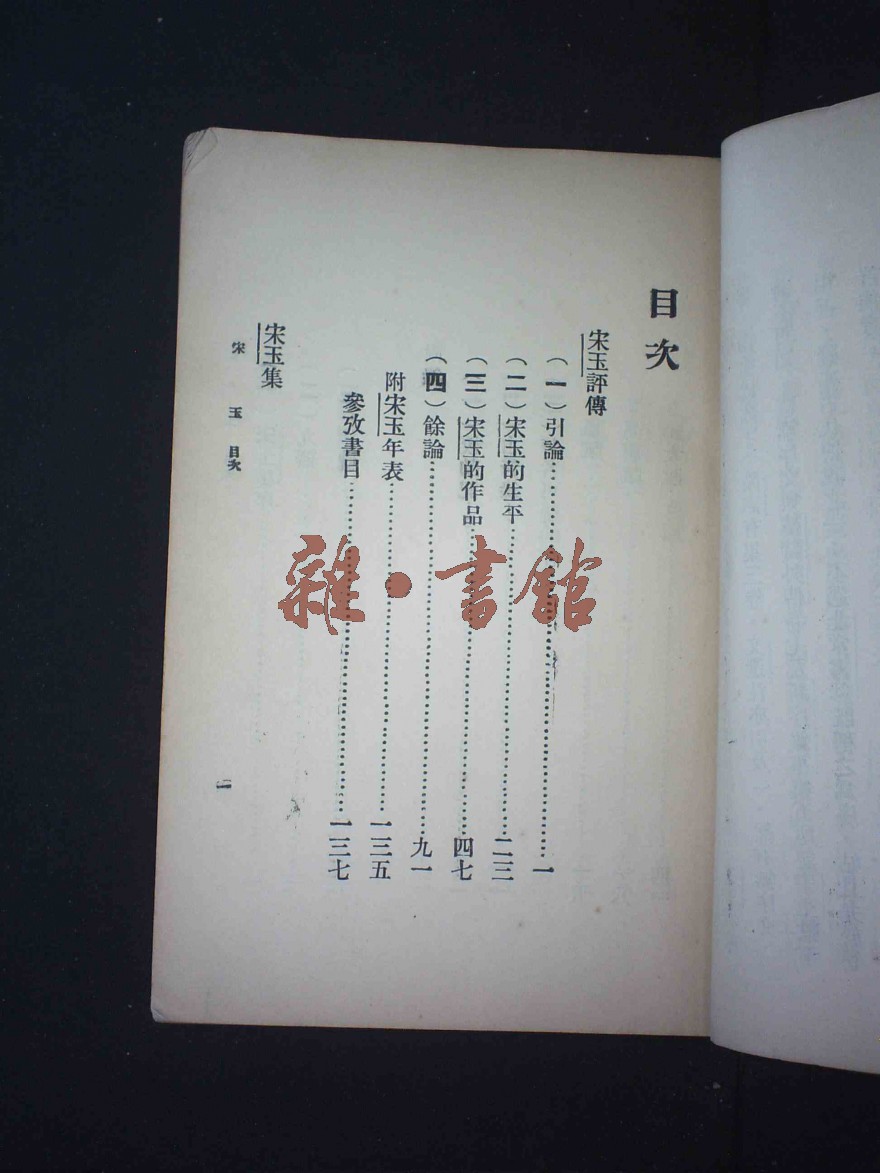 目次
宋玉評傳
(一)引論……一
(二)宋玉的生平……二三
(三)宋玉的作品……四七
(四)餘論……九一
附宋玉年表……一三五
參攷書目……一三七
宋玉集
宋玉 目次
雜·書館